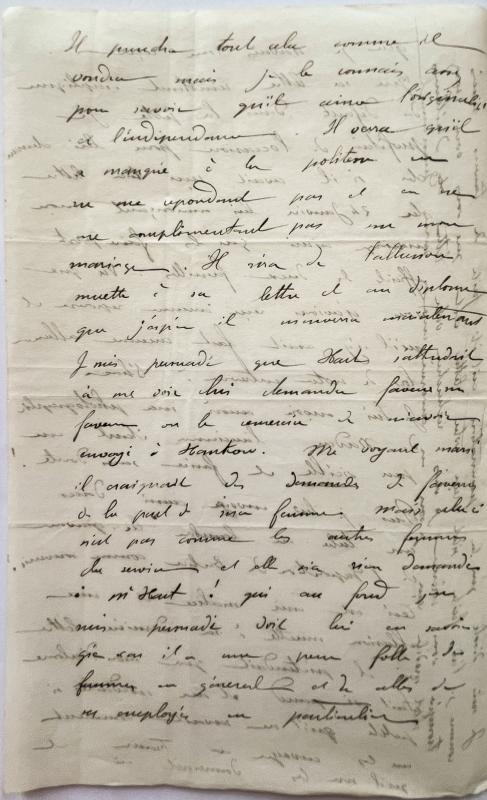 Il prendra tout cela comme il
voudra mais je le connais assez
pour savoir qu'il aime l'originalité
et l'indépendance. Il verra qu'il
a manqué à la politesse en
ne me répondant pas et en ne
me complimentant pas sur mon
mariage. Il rira de l'allusion
muette à sa lettre et au diplome
que j'espère il m'enverra maintenant
Je suis persuadé que Hart s'attendait
à me voir lui demander faveur sur
faveur ou le remercier de m'avoir
envoyé à Hankow. Me voyant marié
il craignait des demandes de faveurs
de la part de ma femme. Mais celle ci
n'est pas comme les autres femmes
du service et elle n'a rien demandé
à Mr Hart ! qui au fond j'en
suis persuadé doit lui en savoir
gré car il a une peur folle des
femmes en général et de celles de
ses employés en particulier